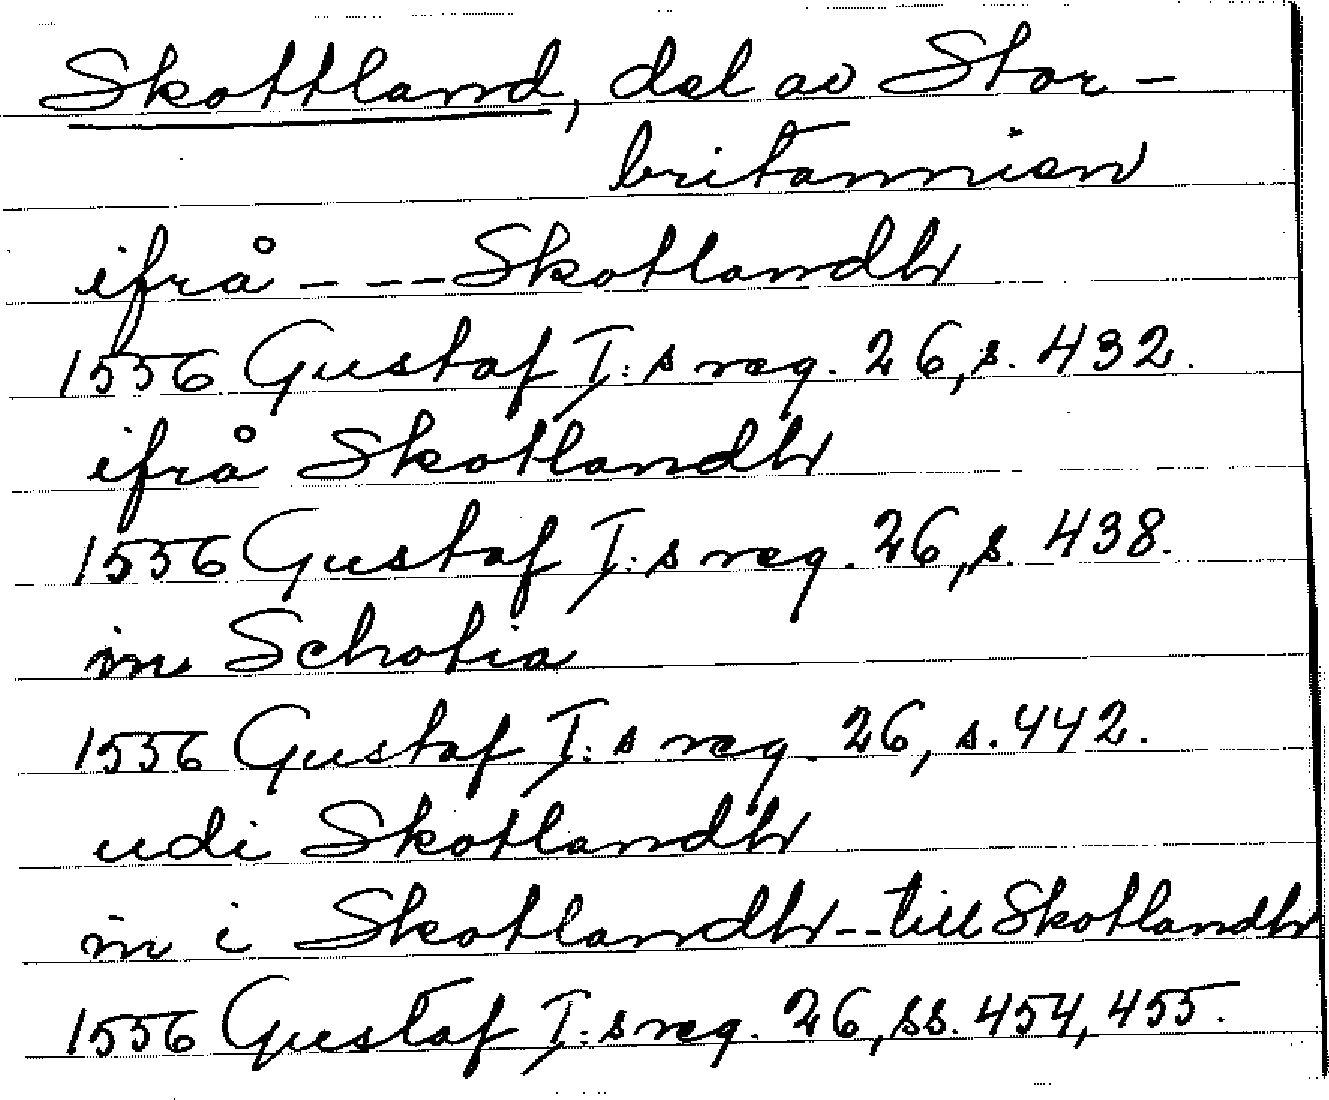 Skottland, del av Stor-
britannien
ifrå - - - Skotlandh
1556 Gustaf I:s reg. 26, s. 432.
ifrå Skotlandh
1556 Gustaf I:s reg. 26, s. 438.
in Schotia
1556 Gustaf I:s reg. 26, s. 442.
udi Skotlandh
in i Skotlandh - - till Skotlandh
1556 Gustaf I:s reg. 26, ss. 454, 455.